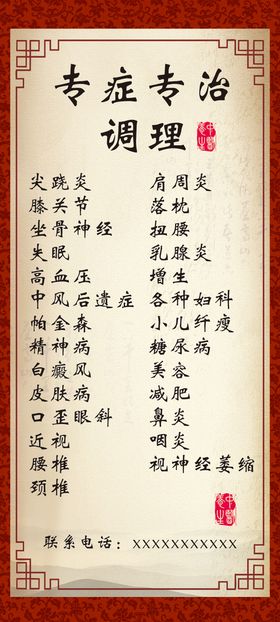 专症专治
调理
尖跷炎 肩周炎
膝关节 落枕
坐骨神经 扭腰
失眠 乳腺炎
高血压 增生
中风后遗症 各种妇科
帕金森 小儿纤瘦
精神病 糖尿病
白癜风 美容
皮肤病 减肥
口歪眼斜 鼻炎
近视 咽炎
腰椎 视神经萎缩
颈椎
联系电话：XXXXXXXXXXX